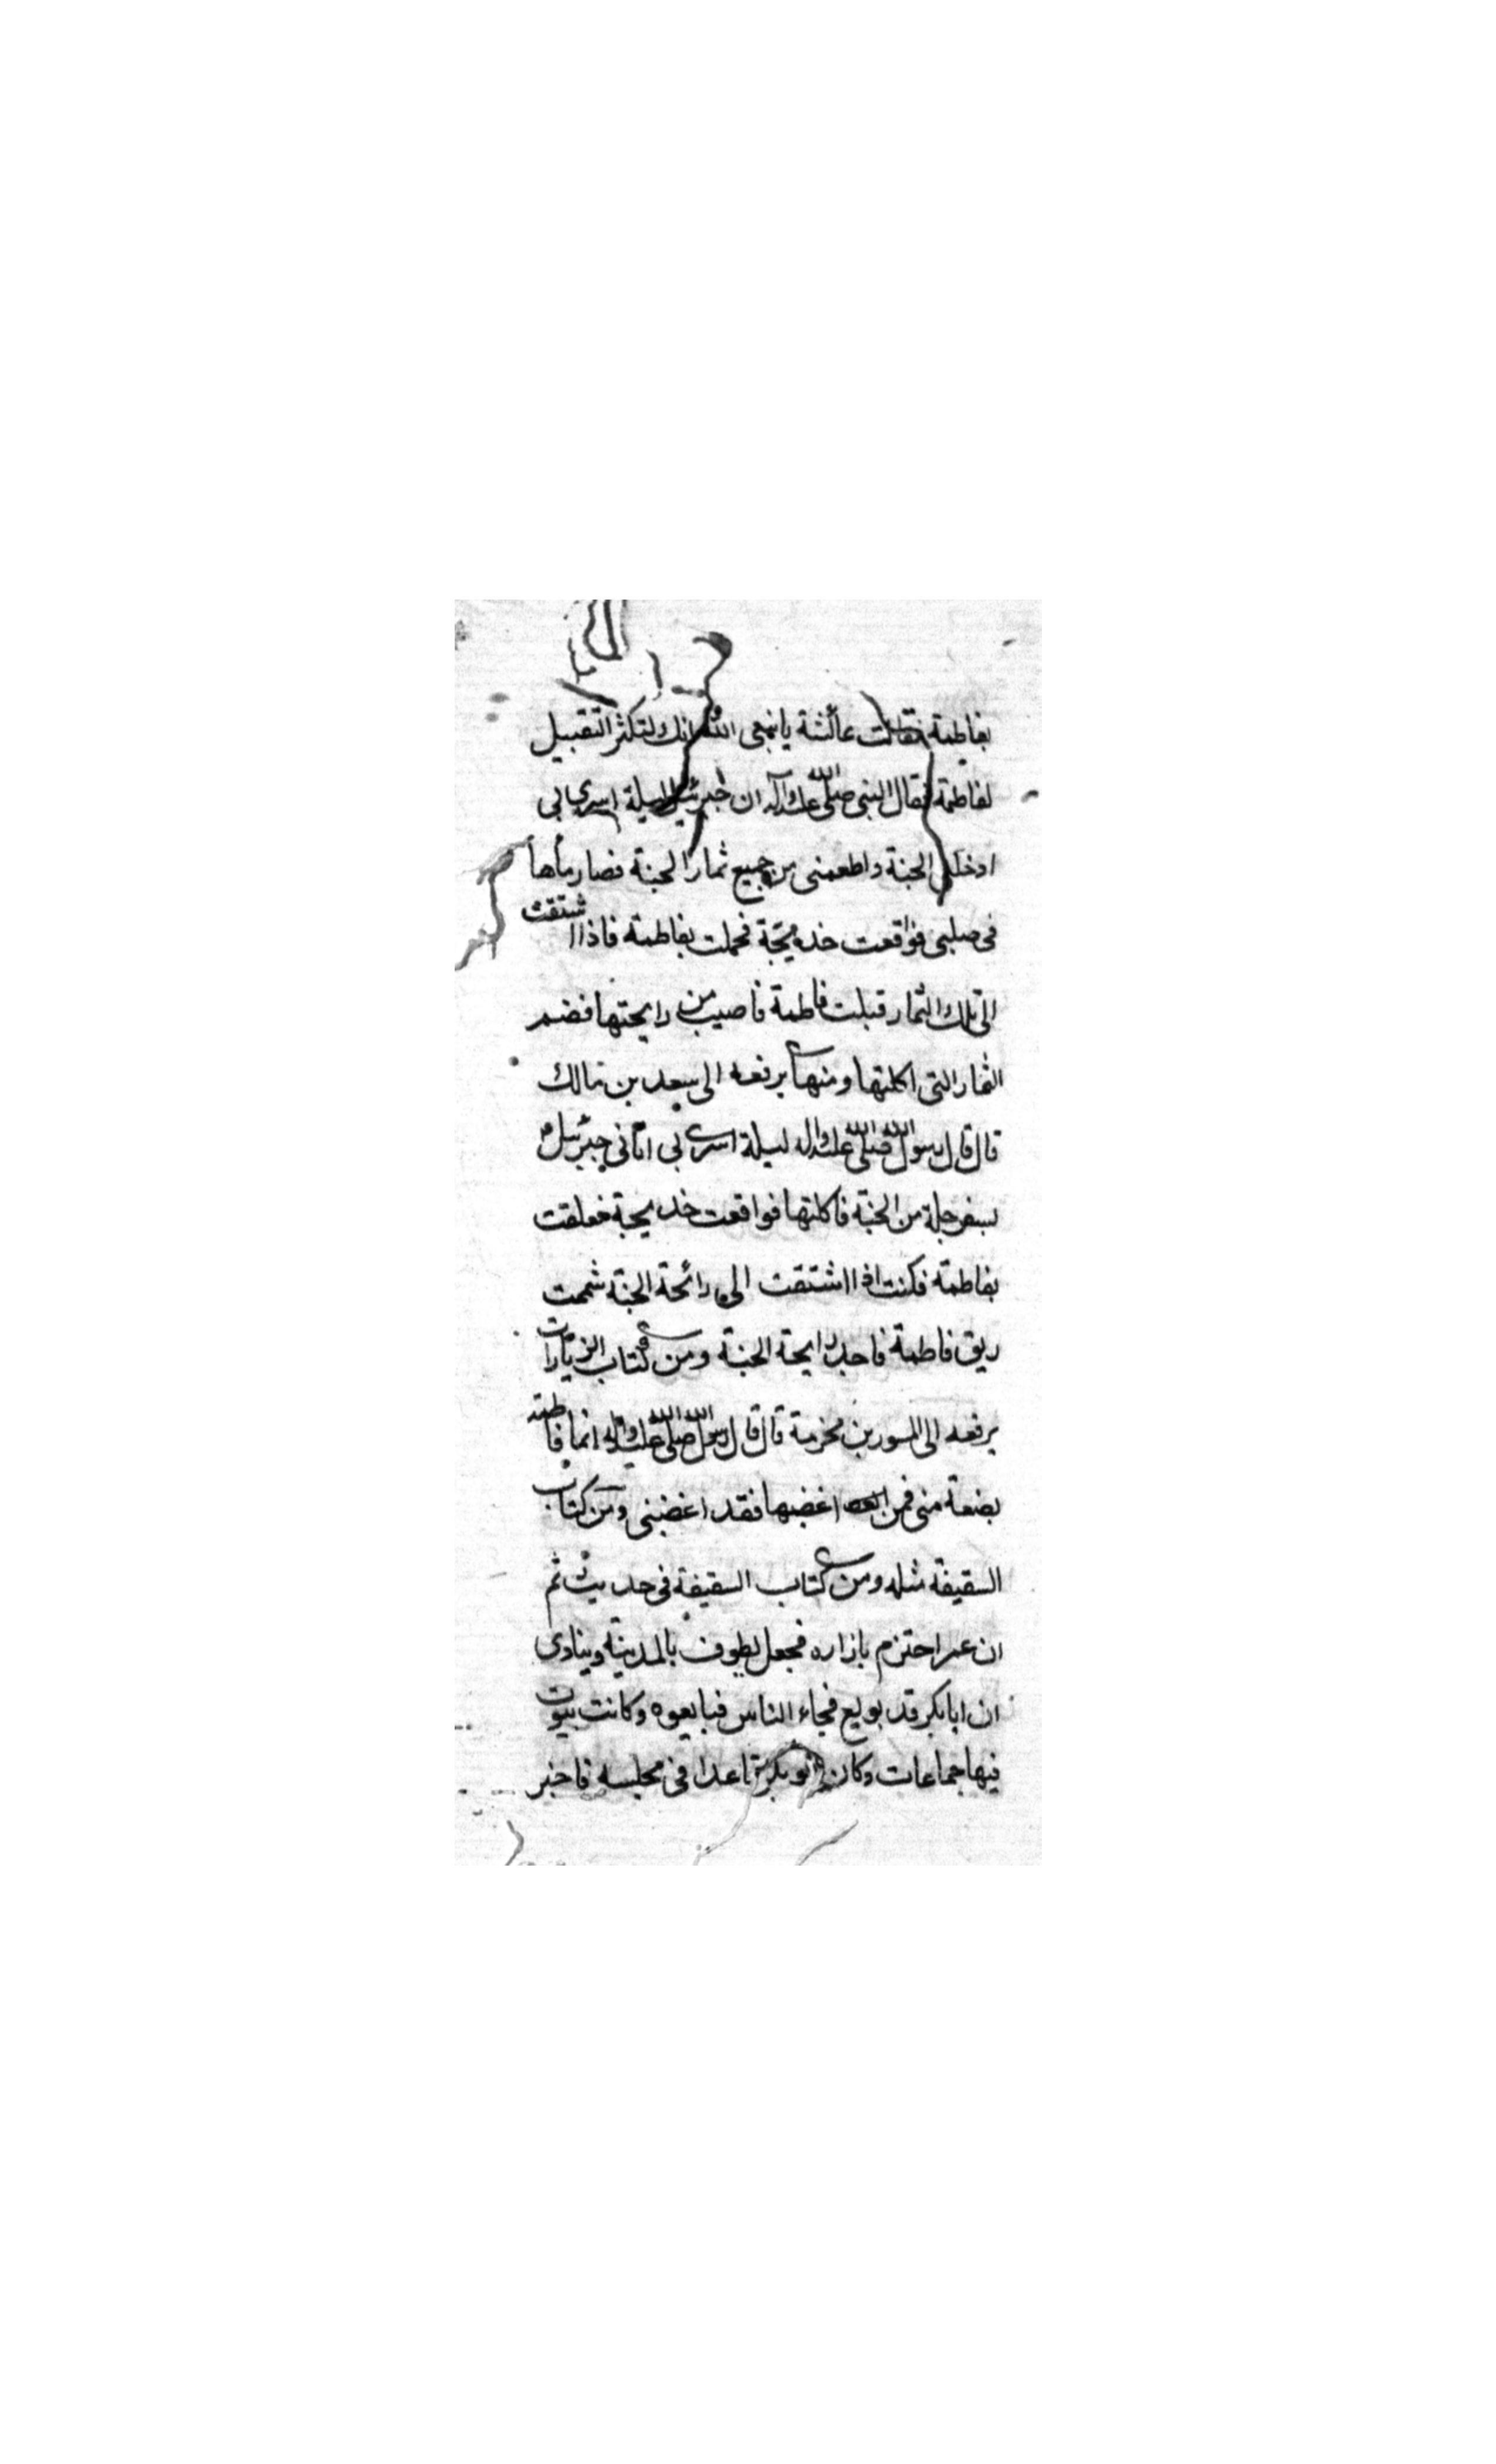 بفاطمة فقالت عائشة يا نبي الله انك لتكثر التقبيل
لفاطمة فقال النبي صلى الله عليه وآله ان جبرئيل ليلة اسرى بي
ادخلني الجنة واطعمني من جميع ثمار الجنة فصار ماءها
في صلبي فواقعت خديجة فحملت بفاطمة فاذا اشتقت
الى تلك الثمار قبلت فاطمة فاصيب من رايحتها فضم
الثمار التي اكلتها ومنها يرفعه الى سعد بن مالك
قال قال رسول الله صلى الله عليه واله ليلة اسرى بي اتاني جبرئيل
بسفرجلة من الجنة فاكلتها فواقعت خديجة فعلقت
بفاطمة فكنت اذا اشتقت الى رائحة الجنة شممت
ريق فاطمة فاجد رايحة الجنة ومن كتاب الزيارات
يرفعه الى المسور بن مخرمة قال قال رسول الله صلى الله عليه واله انما فاطمة
بضعة مني فمن اغضبها فقد اغضبني ومن كتاب
السقيفة مثله ومن كتاب السقيفة في حديث ثم
ان عمر احتزم بازاره فجعل يطوف بالمدينة وينادى
ان ابابكر قد بويع فجاء الناس فبايعوه وكانت بيوت
فيها جماعات وكان ابو بكر قاعدا في مجلسه فاخبر